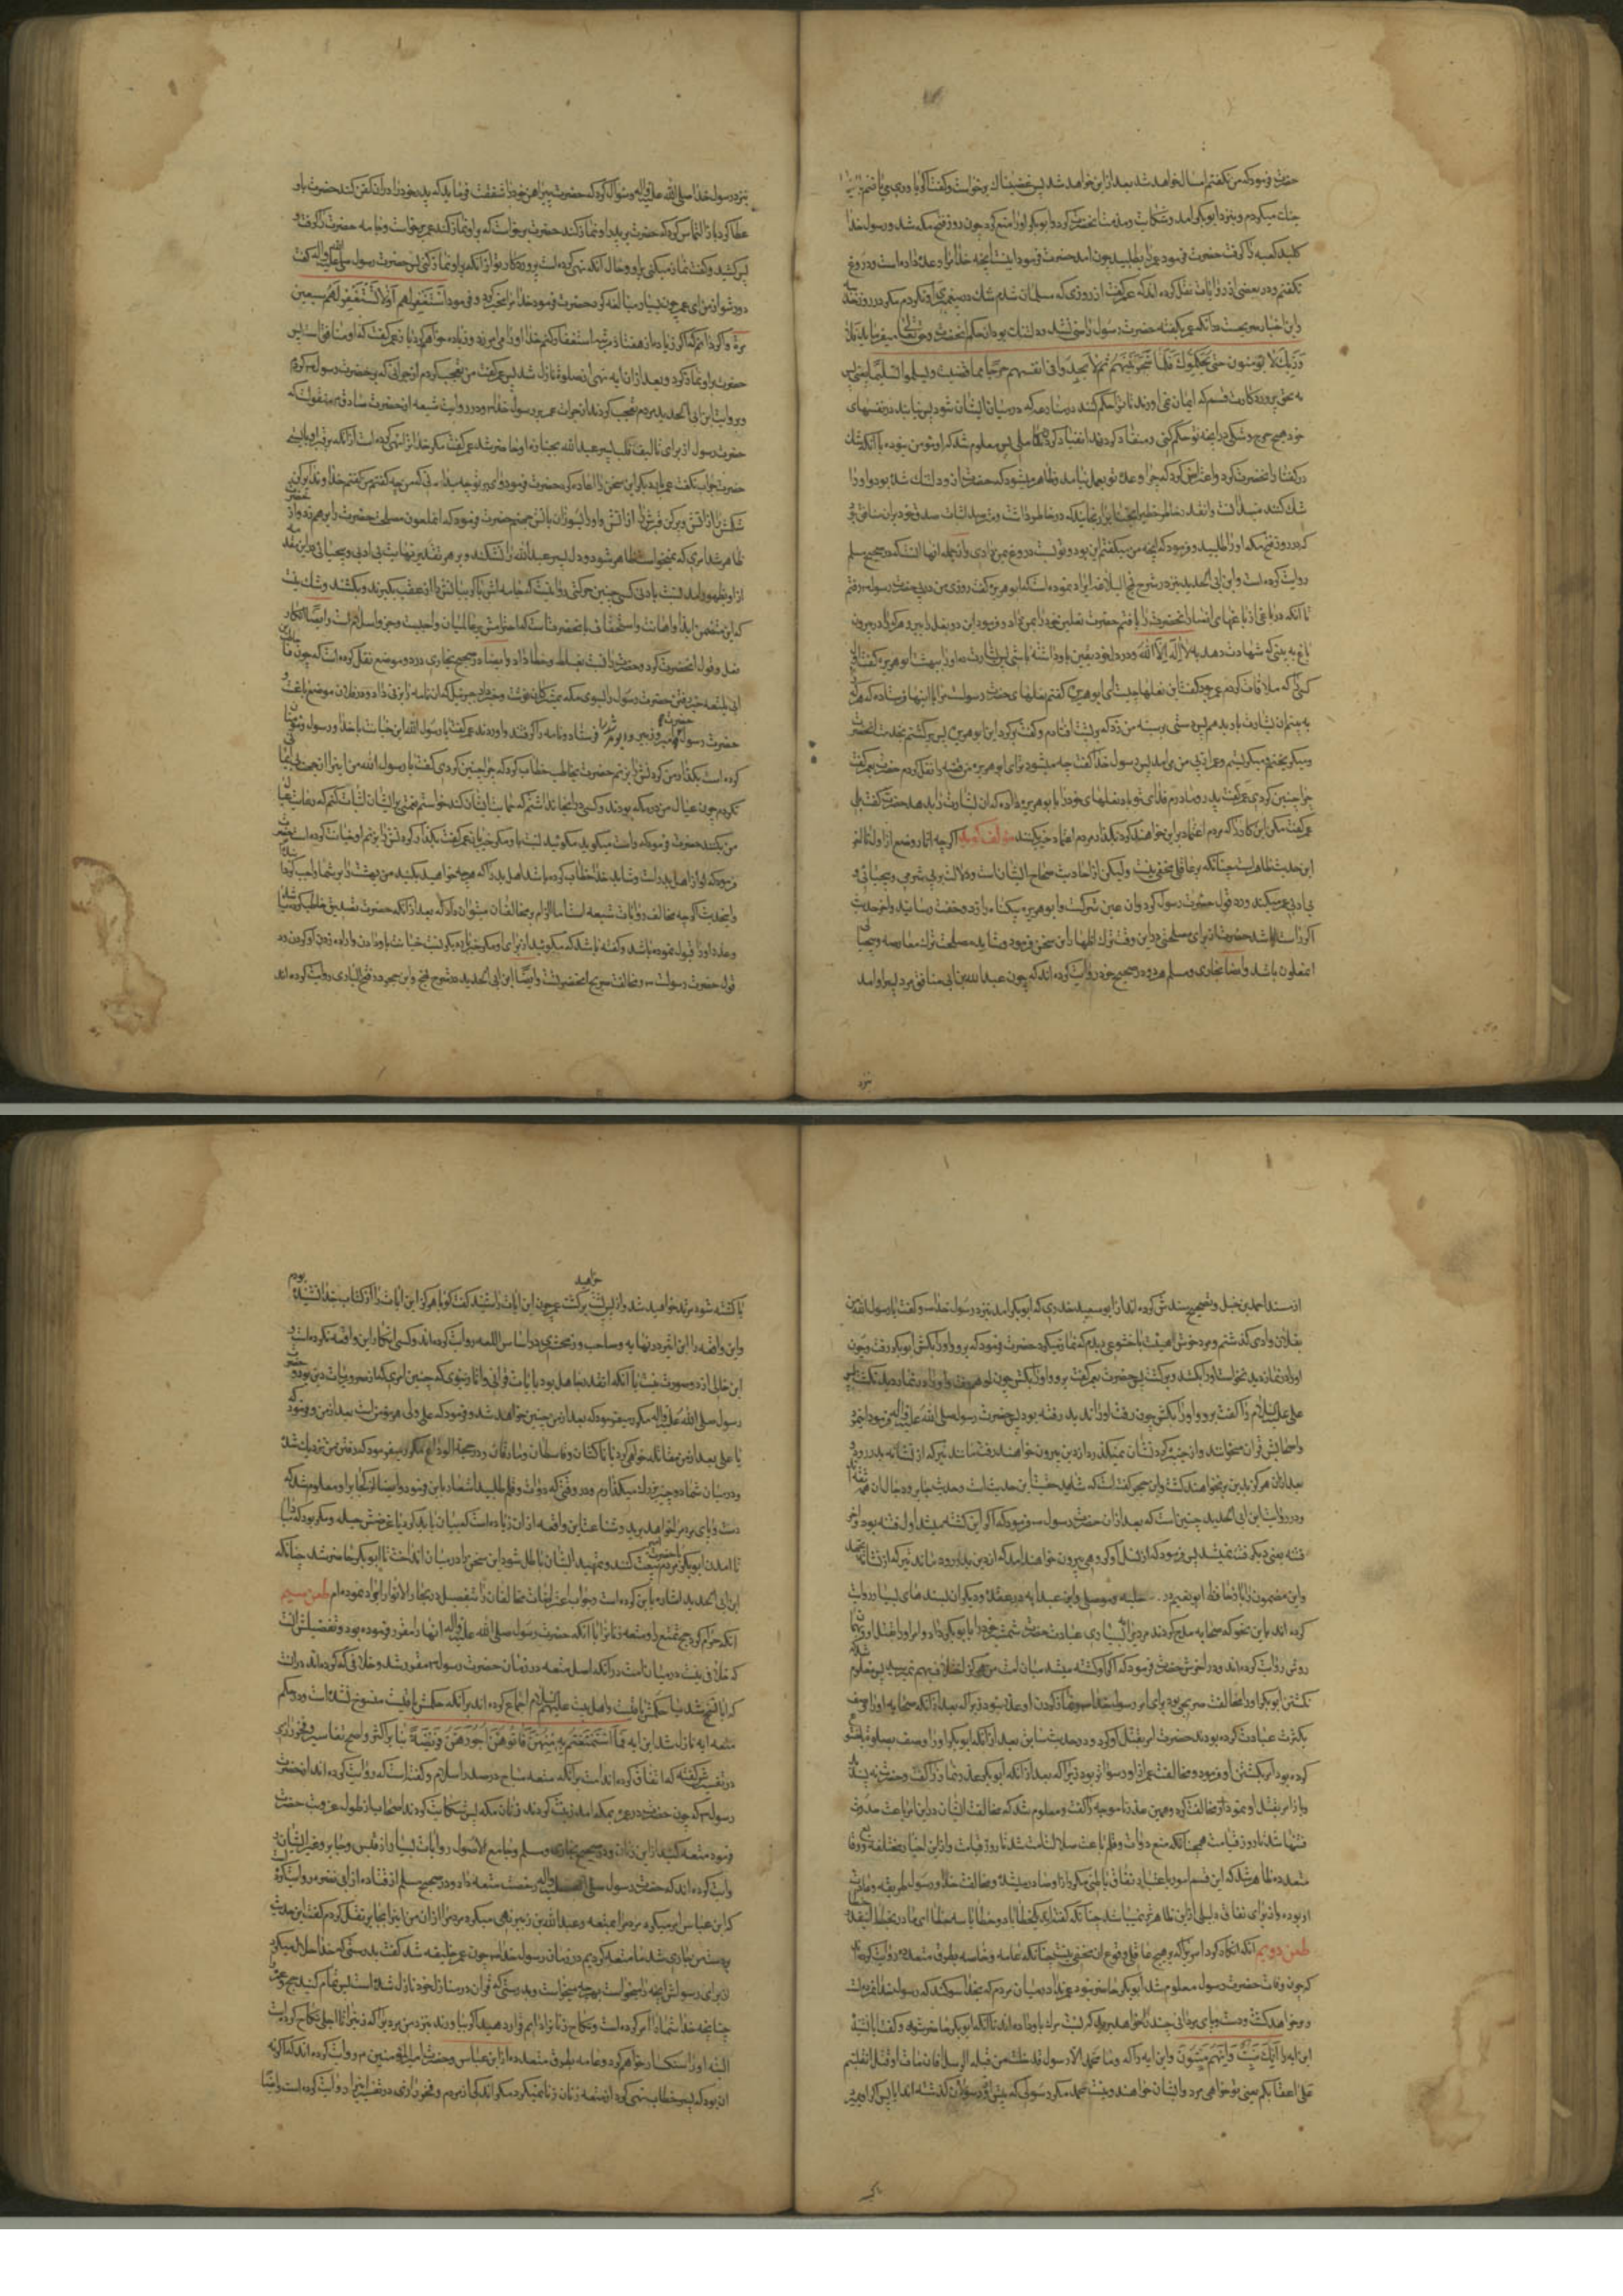 حضرت فرمود که من نکفتم امسال خواهد شد بعد از این خواهد شد پس غضبناک برخاست و کفت اکر یاوری می یافتم
جنک میکردم و بنزد ابوبکر آمد و شکایت و مذمت آنحضرت کرد و ابوبکر او را منع کرد چون روز فتح مکه شد و رسول خدا
کلید کعبه را کرفت حضرت فرمود عمر را بطلبید چون آمد حضرت فرمود اینست آنچه خدا مرا وعده داده است و دروغ
نکفتم و در بعضی از روایات نقل کرده اند که عمر کفت از روزی که مسلمان شدم شک در پیغمبری او نکردم مکر در روز
و این اخبار صریحست در آنکه عمر بکفته حضرت رسول راضی نشد و دلتنک بود از حکم آنحضرت و حق تعالی میفرماید فلا
و ربک لا یؤمنون حتی یحکموک فیما شجر بینهم ثم لا یجدوا فی انفسهم حرجا مما قضیت و یسلموا تسلیما یعنی پس
به حق پروردکارت قسم که ایمان نمی آورند تا ترا حکم کنند در منازعه که در میان ایشان شود پس نیابند در نفسهای
خود هیچ حرج و شکی در آنچه تو حکم کنی و منقاد کردند انقیاد کردنی پس معلوم شد که او مؤمن نبوده با آنکه شک
در کفته آنحضرت کرد و اعتراض کرد که چرا وعده تو بعمل نیامد و ظاهر میشود که حضرت از او دلتنک شده بود و او را
که در روز فتح مکه او را طلبید و فرمود که آنچه من میکفتم این بود و تو نسبت دروغ بمن دادی و از جمله آنها آنست که در صحیح مسلم
روایت کرده است و ابن ابی الحدید نیز در شرح نهج البلاغه ایراد نموده است که ابو هریره کفت روزی من در پی حضرت رسول رفتم
تا آنکه در باغی از باغهای انصار آنحضرت را یافتم حضرت نعلین خود را بمن داد و فرمود این دو نعل را ببر و هر که را در بیرون
باغ به بینی که شهادت دهد به لا اله الا الله و در دل خود یقین باو داشته باشد پس بشارت ده او را ببهشت ابو هریره کفت اول
کسی که ملاقات کردم عمر بود کفت این نعلها چیست ای ابو هریره کفتم نعلهای حضرت رسولست مرا با اینها فرستاده که هر که را
به بینم باین نشان بشارت باو بدهم پس دستی بر سینه من زد که بر پشت افتادم و کفت برکرد ای ابو هریره پس برکشتم بخدمت آنحضرت
و میکریختم و میکریستم و عمر از پی من می آمد پس رسول خدا کفت چه میشود ترا ای ابو هریره من قصه را نقل کردم حضرت بعمر کفت
چرا چنین کردی عمر کفت پدر و مادرم فدای تو باد نعلهای خود را بابو هریره داده که آن بشارت را بدهد حضرت کفت بلی
عمر کفت مکن این کار را که مردم اعتماد بر این خواهند کرد بکذار مردم اعتماد خیر بکنند مؤلف کوید اکر چه آثار وضع از اول تا آخر
این حدیث ظاهر است چنانکه بر عاقل مخفی نیست ولیکن از احادیث صحاح ایشان است و دلالت بر بی شرمی و بیحیائی و
بی ادبی عمر میکند و رد قول حضرت رسول کرد و آن عین شرکست و ابو هریره بیکناه را زد و خفت رسانید و آخر حدیث
اکر راست باشد حضرت از برای مصلحتی در این وقت ترک اظهار این سخن فرمود و شاید مصلحت ترک معارضه و بیحیائی
آنملعون باشد و ایضا بخاری و مسلم هر دو در صحیح خود روایت کرده اند که چون عبد الله بن ابی منافق مرد پسر او آمد
بنزد
بنزد رسول خدا صلی الله علیه و آله و سؤال کرد که حضرت پیراهن خود را شفقت فرماید که پدر خود را در آن کفن کند حضرت باو
عطا کرد باز التماس کرد که حضرت بر پدر او نماز کند حضرت برخاست که بر او نماز کند عمر برخاست و جامه حضرت را کرفت و
پس کشید و کفت نماز میکنی بر او و حال آنکه نهی کرده است پروردکار تو از آنکه بر او نماز کنی پس حضرت رسول صلی الله علیه و آله کفت
دور شو از من ای عمر چون بسیار مبالغه کرد حضرت فرمود خدا مرا مخیر کرده و فرمود استغفر لهم او لا تستغفر لهم سبعین
مرة و اکر دانم که اکر زیاده از هفتاد مرتبه استغفار کنم خدا او را می آمرزد زیاده خواهم کرد باز عمر کفت که او منافق است پس
حضرت بر او نماز کرد و بعد از آن آیه نهی از صلوة نازل شد پس عمر کفت من تعجب کردم از جرأتی که بر حضرت رسول کردم
و بروایت ابن ابی الحدید مردم تعجب کردند از جرأت عمر بر رسول خدا و در روایت شیعه از حضرت صادق منقولست که
حضرت رسول از برای تألیف قلب پسر عبد الله بجنازه او حاضر شد عمر کفت مکر خدا ترا نهی نکرده است از آنکه بر قبر او بایستی
حضرت جواب نکفت عمر باز دیکر این سخن را اعاده کرد حضرت فرمود وای بر تو چه میدانی که من چه کفتم من کفتم خداوندا پر کن
شکمش را از آتش و پر کن قبرش را از آتش و او را بسوزان بآتش جهنم حضرت فرمود که آنملعون مصلحت حضرت را برهم زد و از
از او بظهور آمد نسبت بادنی کسی چنین حرکتی روا نیست که جامه اش یا کریبانش را از عقب بکیرند و بکشند و شک نیست
که این متضمن ایذا و اهانت و استخفاف بآنحضرتست که احترامش بر عالمیان واجبست و جزو اسلام است و ایضا انکار
فعل و قول آنحضرت کرد و حضرت را نسبت بغلط و خطا داد و ایضا در صحیح بخاری در دو موضع نقل کرده است که چون حاطب بن
کرده است بکذار من کردنش را بزنم حضرت بحاطب خطاب کرد که چرا چنین کردی کفت یا رسول الله من اینرا از بی ایمانی
نکردم چون عیال من در مکه بودند و کسی در آنجا نداشتم که حمایت ایشان کند خواستم نعمتی بر ایشان ثابت کنم که رعایت عیال
من بکنند حضرت فرمود که راست میکوید مکوئید نسبت باو مکر خیر باز عمر کفت بکذار که کردنش را بزنم او خیانت کرده است حضرت
فرمود که او از اهل بدر است و شاید خدا خطاب کرده باشد اهل بدر را که هر چه خواهید بکنید من بهشت را بر شما واجب کردم
و این حدیث اکر چه مخالف روایات شیعه است اما الزام بر مخالفان میتوان داد که بعد از آنکه حضرت تصدیق حاطب کرد
و عذر او را قبول نموده باشد و کفته باشد که مکوئید از برای او مکر خیر باز دیکر نسبت خیانت باو دادن و اراده زدن او کردن رد
قول حضرت رسولست و مخالفت صریح آنحضرتست و ایضا ابن ابی الحدید در شرح نهج و ابن حجر در فتح الباری روایت کرده اند
از مسند احمد بن حنبل و تصحیح سندش کرده اند از ابو سعید خدری که ابوبکر آمد بنزد رسول خدا و کفت یا رسول الله من
بفلان وادی کذشتم و مرد خوش هیئت با خشوعی دیدم که نماز میکرد حضرت فرمود که برو او را بکش ابوبکر رفت و چون
او را در نماز دید نخواست او را بکشد و برکشت پس حضرت بعمر کفت برو و او را بکش چون او هم رفت و او را در نماز دید نکشت پس
علی علیه السلام را کفت برو و او را بکش چون رفت او را ندید رفته بود پس حضرت رسول صلی الله علیه و آله فرمود این مرد
و اصحابش قرآن میخوانند و از چنبره کردنشان نمیکذرد و از دین بیرون خواهند رفت مانند تیر که از نشانه بدر رود و
بعد از آن هرکز بدین برنخواهند کشت و ابن حجر کفته است که شاهد حقیت این حدیث است و حدیث جابر و رجال آن همه ثقه اند
و در روایت ابن ابی الحدید چنین است که بعد از آن حضرت رسول فرمود که اکر این کشته میشد اول فتنه بود و آخر
فتنه یعنی دیکر فتنه نمیشد پس فرمود که از نسل او کروهی بیرون خواهند آمد که از دین بدر روند مانند تیر که از نشانه
و این مضمون را باز حافظ ابو نعیم در حلیه و موصلی و ابن عبد ربه در عقد و دیکران بسندهای بسیار روایت
نکشتن ابوبکر او را مخالفت صریح بود برای امر رسول خدا و نماز کردن او عذر نبود زیرا که بعد از آنکه صحابه او را وصف
بکثرت عبادت کرده بودند حضرت امر بقتل او کرد و در حدیث سابق بعد از آنکه ابوبکر او را وصف بصلوة و خشوع
کرده بود امر بکشتن او فرمود و مخالفت عمر از او رسواتر بود زیرا که بعد از آنکه ابوبکر عذر نماز را کفت و حضرت نپسندید
و باز امر بقتل او نمود باز مخالفت کرد و همین عذر ناموجه را کفت و معلوم شد که مخالفت ایشان در این امر باعث حدوث
فتنها شد تا روز قیامت همچنانکه منع دوات و قلم باعث ضلالت امت شد تا روز قیامت و از این اخبار مختلفه
طعن دویم آنکه انکار کرد امری را که بر هیچ عاقل وقوع آن مخفی نیست چنانکه عامه و خاصه بطرق متعدده روایت کرده اند
که چون وفات حضرت رسول معلوم شد ابوبکر حاضر نبود عمر فریاد زد میان مردم که بخدا سوکند که رسول خدا نمرده است
و برخواهد کشت و دست و پای مردانی چند را خواهد برید که نسبت مرک باو داده اند تا آنکه ابوبکر حاضر شد و کفت آیا نشنیده
این آیه را انک میت و انهم میتون و این آیه را که و ما محمد الا رسول قد خلت من قبله الرسل افان مات او قتل انقلبتم
علی اعقابکم یعنی تو خواهی مرد و ایشان خواهند مرد و نیست محمد مکر رسولی که پیش از او رسولان کذشته اند آیا پس اکر او بمیرد
یا کشته شود مرتد خواهید شد و از پس پشت برخواهید کشت عمر چون این آیات را شنید کفت کویا هرکز این آیات را از کتاب خدا نشنیده بودم
و این واقعه را ابن اثیر در نهایه و صاحب و زمخشری در اساس اللغه روایت کرده اند و کسی انکار این واقعه نکرده است و
این خالی از دو صورت نیست یا آنکه انقدر جاهل بود بآیات قرآنی و آثار نبوی که چنین امری که از ضروریات دین بود و حضرت
رسول صلی الله علیه و آله مکرر میفرمود که بعد از من چنین خواهد شد و فرمود که علی ولی هر مؤمن است بعد از من و فرمود که
یا علی بعد از من مقاتله خواهی کرد با ناکثان و قاسطان و مارقان و در حجة الوداع مکرر میفرمود که رفتن من نزدیک شده
و در میان شما دو چیز بزرک میکذارم و در وقتی که دوات و قلم طلبید اشعار باین فرمود و ایضا از کجا بر او معلوم شد که
دست و پای مردم را خواهد برید و شناعت این واقعه از آن زیاده است که بیان باید کرد یا غرضش حیله و مکر بود که مبادا
تا آمدن ابوبکر مردم با حضرت امیر بیعت کنند و تمهید ایشان باطل شود این سخن را در میان انداخت تا ابوبکر حاضر شد چنانکه
ابن ابی الحدید اشاره باین کرده است و جواب اعتراضات مخالفان را بتفصیل در بحار الانوار ایراد نموده ام طعن سیم
آنکه حرام کرد حج تمتع را و متعه زنان را با آنکه حضرت رسول صلی الله علیه و آله آنها را مقرر فرموده بود و تفصیلش آنست
که خلافی نیست در میان امت در آنکه اصل متعه در زمان حضرت رسول مقرر شد و خلافی که کرده اند در آنست
که آیا نسخ شد یا حکمش باقیست و اهل بیت علیهم السلام اجماع کرده اند بر آنکه حکمش باقیست منسوخ نشده است و در حکم
متعه آیه نازل شد این آیه فما استمتعتم به منهن فآتوهن اجورهن فریضة بنا بر اکثر و اصح تفاسیر و فخر رازی
در تفسیرش کفته که اتفاق کرده اند امت بر آنکه متعه مباح در صدر اسلام و کفته است که روایت کرده اند از حضرت
رسول که چون حضرت در عمره بمکه آمد زینت کردند زنان مکه پس شکایت کردند اصحاب از طول عزوبت حضرت
فرمود متعه کنید از این زنان و در صحیح بخاری و مسلم و جامع الاصول روایات بسیار از قیس و جابر و غیر ایشان
روایت کرده اند که حضرت رسول صلی الله علیه و آله رخصت متعه داد و در صحیح مسلم از قتاده از ابی نضره روایت کرده
که ابن عباس امر میکرد مردم را بمتعه و عبد الله بن زبیر نهی میکرد مردم را از آن من اینرا بجابر نقل کردم کفت این حدیث
بر دست من جاری شد ما متعه کردیم در زمان رسول خدا چون عمر خلیفه شد کفت بدرستی که خدا حلال میکرد
از برای رسولش آنچه را میخواست بهر چه میخواست و بدرستی که قرآن در منازل خود نازل شده است پس تمام کنید حج و عمره را
چنانچه خدا شما را امر کرده است و نکاح زنان را دایم قرار دهید اکر بیاورند بنزد من مردی را که زنی را تا اجلی نکاح کرده است
البته او را سنکسار خواهم کرد و عامه بطرق متعدده از ابن عباس و حضرت امیر المؤمنین روایت کرده اند که اکر نه
آن بود که پسر خطاب نهی کرد از متعه زنان زنا نمیکرد مکر اندکی از مردم و فخر رازی در تفسیر اینرا روایت کرده است و ایضا